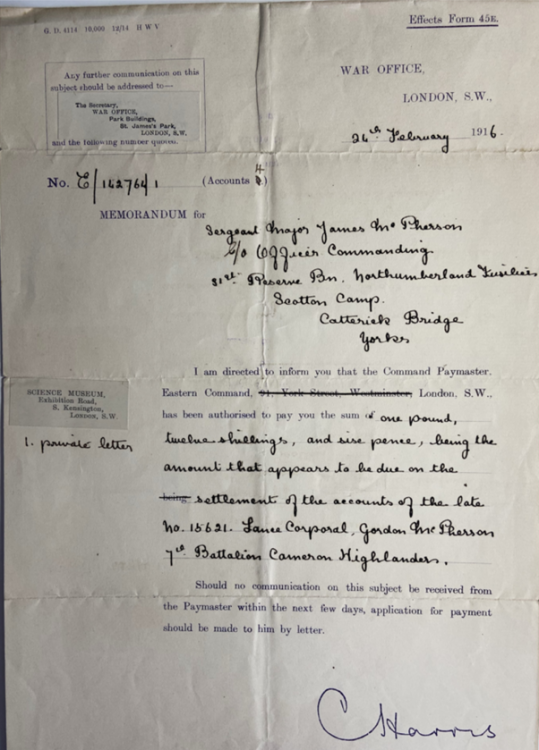 Effects Form 45E.
G. D. 4114 10,000 12/14 H W V
WAR OFFICE,
LONDON, S.W.,
24th February 1916.
Any further communication on this
subject should be addressed to—
The Secretary,
WAR OFFICE,
Park Buildings,
St. James's Park,
LONDON, S.W.
and the following number quoted.
No. E/142764/1 (Accounts 4.)
MEMORANDUM for
Sergeant Major James McPherson
c/o Officer Commanding
31st Reserve Bn. Northumberland Fusiliers
Scotton Camp.
Catterick Bridge
Yorks
I am directed to inform you that the Command Paymaster.
Eastern Command, 91, York Street, Westminster, London, S.W.,
has been authorised to pay you the sum of one pound,
twelve shillings, and sixe pence, being the
amount that appears to be due on the
being settlement of the accounts of the late
No. 15621. Lance Corporal, Gordon McPherson
7th Battalion Cameron Highlanders.
SCIENCE MUSEUM,
Exhibition Road,
S. Kensington,
London, S.W.
1. private letter
Should no communication on this subject be received from
the Paymaster within the next few days, application for payment
should be made to him by letter.
C Harris